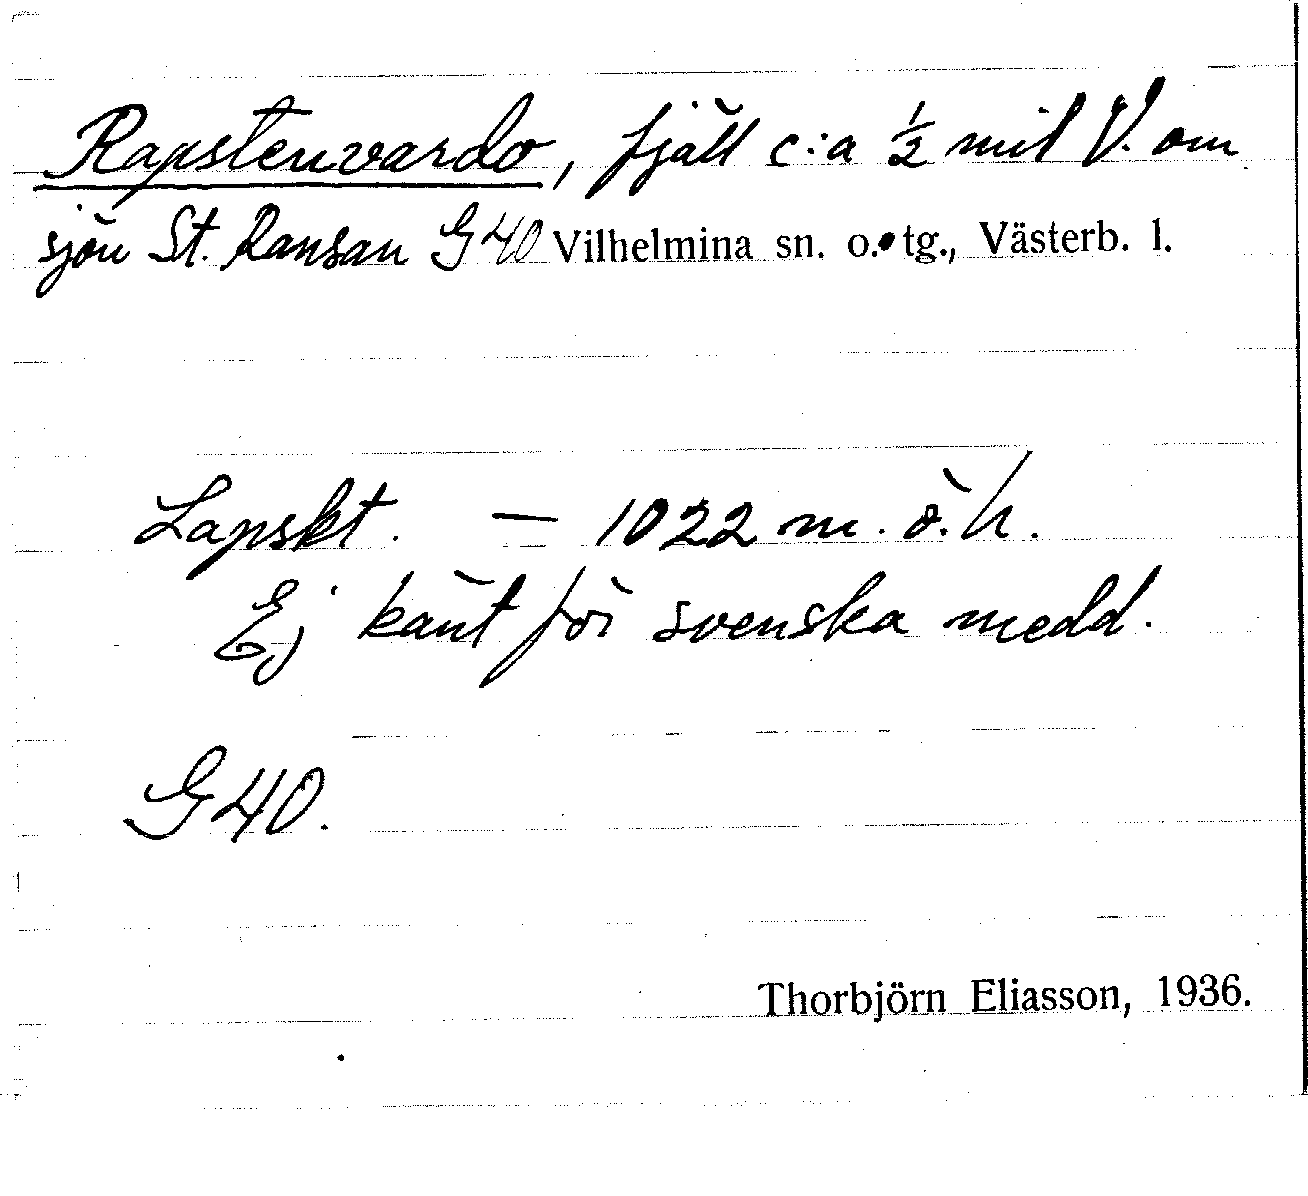 Rapstenvardo, fjäll c:a ½ mil V. om
sjön St. Ransan G40 Vilhelmina sn. o. tg., Västerb. l.
Lapskt. — 1022 m. ö. h.
Ej känt för svenska medd.
G40.
Thorbjörn Eliasson, 1936.